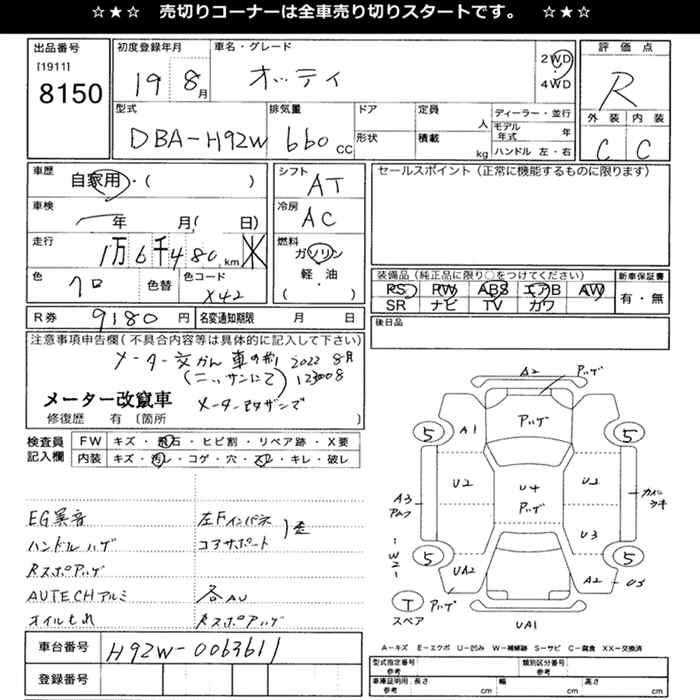 ☆★☆ 売切りコーナーは全車売り切りスタートです。 ☆★☆
出品番号
[1911]
8150
初度登録年月
19 8月
車名・グレード
オッティ
2WD
・
4WD
評価点
R
外装 内装
C C
型式
DBA-H92W
排気量
660 cc
ドア
形状
定員
人
積載
kg
ディーラー・並行
モデル年式 年
ハンドル 左・右
車歴
自家用・( )
車検
年 月( 日)
走行
1万6千480km
色
クロ
色替
色コード
X42
シフト
AT
冷房
AC
燃料
ガソリン
軽・油
( )
セールスポイント(正常に機能するものに限ります)
装備品(純正品に限り○をつけてください)
PS PW ABS エアB AW
SR ナビ TV カワ
新車保証書
有・無
後日品
R券 9180円
名変通知期限 月 日
注意事項申告欄(不具合内容等は具体的に記入して下さい)
メーター交かん車の為 2022 8月
(ニッサンにて) 123008
メーター改竄車
メーターマキザンズデ
修復歴 有〔箇所 〕
検査員
記入欄
FW キズ・飛石・ヒビ割・リペア跡・X要
内装 キズ・汚レ・コゲ・穴・スレ・キレ・破レ
EG異音
ハンドルハゲ
Rスポアハゲ
AUTECHアルミ
オイルもれ
左Fインパネ
コアサポート
各AU
Rスポアハゲ
車台番号 H92W-0063611
登録番号
A2
ハゲ
5
A1
ハゲ
5
U2
U4
ハゲ
U2
A3
U3
5
UA2
A2
U3
5
T
スペア
ハゲ
UA1
A-キズ E-エクボ U-凹み W-補修跡 S-サビ C-腐食 XX-交換済
型式指定番号
参考
類別区分番号
参考
車庫証明用
参考
長さ cm
幅 cm
高さ cm